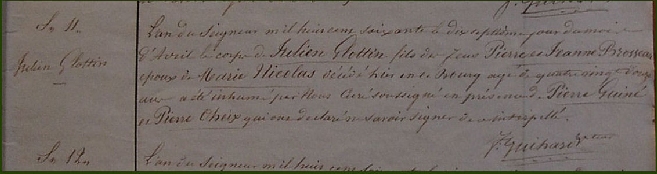 Sr 11.
Julien Glottin
L'an du Seigneur mil huit cent soixante le dix septième jour du mois
d'Avril le corps de Julien Glottin fils de feus Pierre et Jeanne
époux de Marie Nicolas décédé hier en ce bourg agé de quatre vingt
ans a été inhumé par Nous Curé soussigné en présence de Pierre Guiné
et Pierre qui ont déclaré ne savoir signer de ce interpellé.
J. Guihard
Sr 12.
L'an du Seigneur mil huit cent